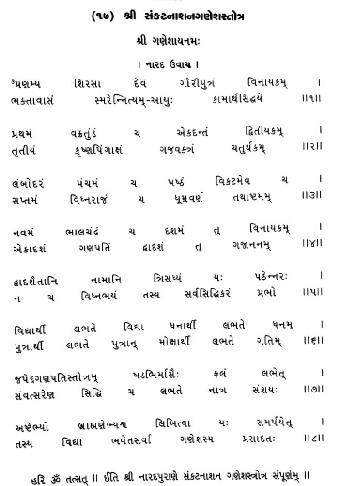 (૧૭) શ્રી સંકટનાશનગણેશસ્તોત્ર
શ્રી ગણેશાયનમઃ
। નારદ ઉવાચ ।
પ્રણમ્ય શિરસા દેવ ગૌરીપુત્રં વિનાયકમ્ ।
ભક્તાવાસં સ્મરેન્નિત્યમ્-આયુઃ કામાર્થસિદ્ધયે ॥૧॥
પ્રથમં વક્રતુંડં ચ એકદન્તં દ્વિતીયકમ્ ।
તૃતીયં કૃષ્ણપિંગાક્ષં ગજવક્ત્રં ચતુર્થકમ્ ॥૨॥
લંબોદરં પંચમં ચ ષષ્ઠં વિકટમેવ ચ ।
સપ્તમં વિઘ્નરાજં ચ ધૂમ્રવર્ણં તથાષ્ટમમ્ ॥૩॥
નવમં ભાલચંદ્રં ચ દશમં તુ વિનાયકમ્ ।
એકાદશં ગણપતિં દ્વાદશં તુ ગજાનનમ્ ॥૪॥
દ્વાદશૈતાનિ નામાનિ ત્રિસંધ્યં યઃ પઠેન્નરઃ ।
ન ચ વિઘ્નભયં તસ્ય સર્વસિદ્ધિકરં પ્રભો ॥૫॥
વિદ્યાર્થી લભતે વિદ્યા ધનાર્થી લભતે ધનમ્ ।
પુત્રાર્થી લભતે પુત્રાન્ મોક્ષાર્થી લભતે ગતિમ્ ॥૬॥
જપેદ્ગણપતિસ્તોત્રમ્ ષડભિર્માસૈઃ ફલં લભેત્ ।
સંવત્સરેણ સિદ્ધિં ચ લભતે નાત્ર સંશયઃ ॥૭॥
અષ્ટભ્યો બ્રાહ્મણેભ્યશ્ચ લિખિત્વા યઃ સમર્પયેત્ ।
તસ્ય વિદ્યા ભવેત્સર્વા ગણેશસ્ય પ્રસાદતઃ ॥૮॥
હરિ ૐ તત્સત્ ॥ ઈતિ શ્રી નારદપુરાણે સંકટનાશન ગણેશસ્ત્રોત્ર સંપૂર્ણમ્ ॥